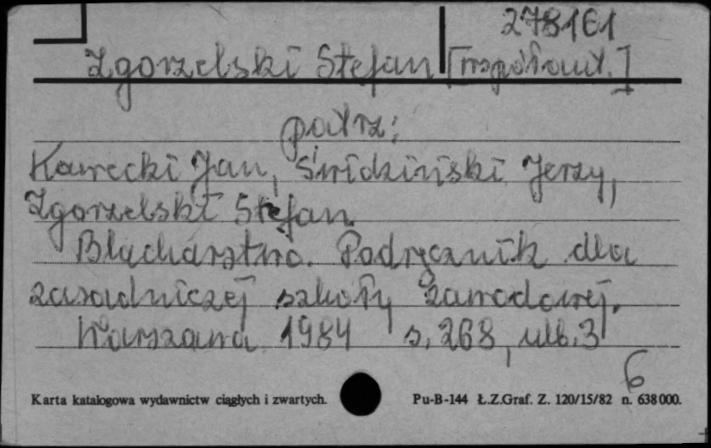 278161
Zgorzelski Stefan [współaut.]
patrz:
Kawecki Jan, Świdziński Jerzy,
Zgorzelski Stefan
Blacharstwo. Podręcznik dla
zasadniczej szkoły zawodowej.
Warszawa 1984 s. 268, nlb. 3
6
Karta katalogowa wydawnictw ciągłych i zwartych. Pu-B-144 Ł.Z.Graf. Z. 120/15/82 n. 638000.